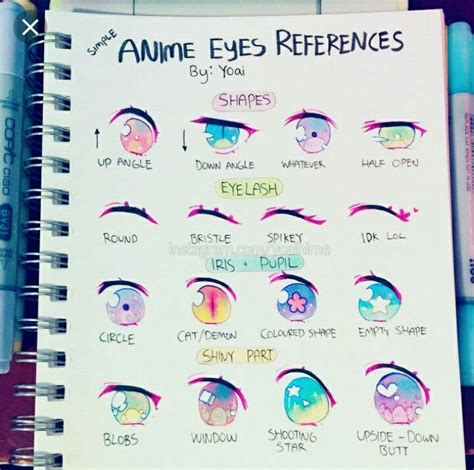 SIMPLE ANIME EYES REFERENCES
By: Yoai
SHAPES
UP ANGLE DOWN ANGLE WHATEVER HALF OPEN
EYELASH
ROUND BRISTLE SPIKEY IDK LOL
instagram.com/yoaihime
IRIS + PUPIL
CIRCLE CAT/DEMON COLOURED SHAPE EMPTY SHAPE
SHINY PART
BLOBS WINDOW SHOOTING STAR UPSIDE-DOWN BUTT
COPIC ciao
BV31